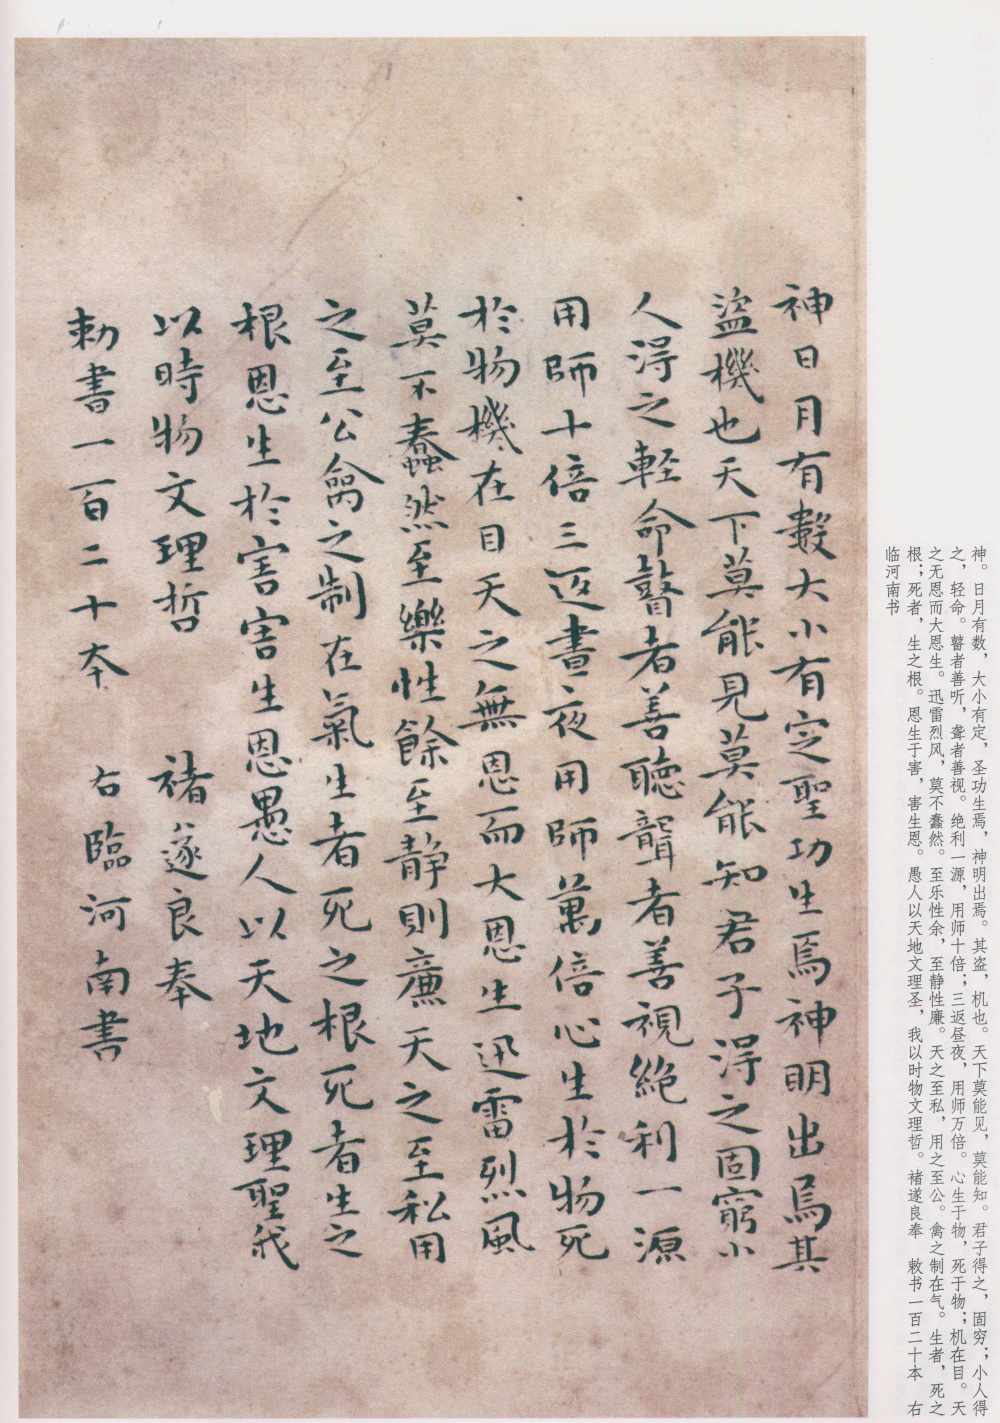 神。日月有数，大小有定，圣功生焉，神明出焉。其盗，机也。天下莫能见，莫能知。君子得之，固穷；小人得
之，轻命。瞽者善听，聋者善视。绝利一源，用师十倍；三返昼夜，用师万倍。心生于物，死于物；机在目。天
之无恩而大恩生。迅雷烈风，莫不蠢然。至乐性余，至静性廉。天之至私，用之至公。禽之制在气。生者，死之
根；死者，生之根。恩生于害，害生恩。愚人以天地文理圣，我以时物文理哲。褚遂良奉　敕书一百二十本　右
临河南书
神日月有數大小有定聖功生焉神明出焉其
盜機也天下莫能見莫能知君子得之固窮小
人得之輕命瞽者善聽聾者善視絶利一源
用師十倍三返晝夜用師萬倍心生於物死
於物機在目天之無恩而大恩生迅雷烈風
莫不蠢然至樂性餘至静則廉天之至私用
之至公禽之制在氣生者死之根死者生之
根恩生於害害生恩愚人以天地文理聖我
以時物文理哲　褚遂良奉
勅書一百二十本　右臨河南書